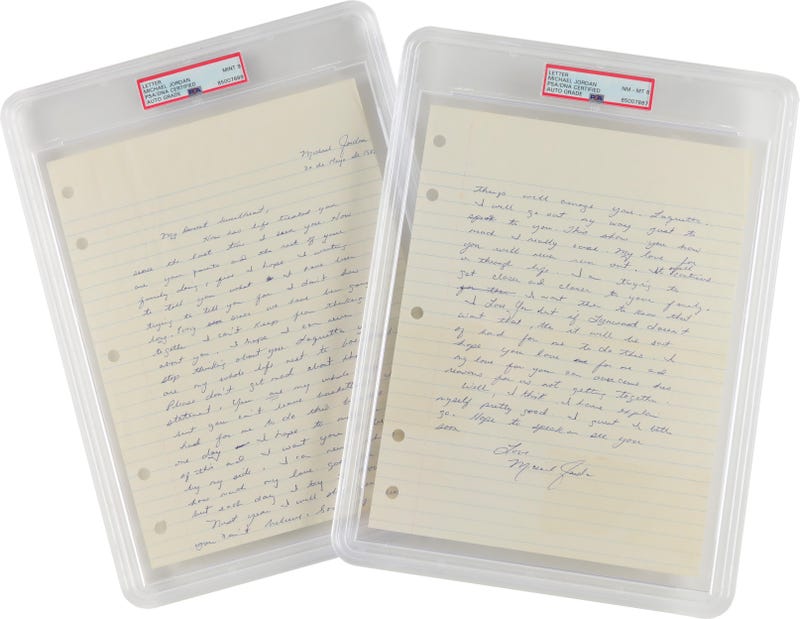 LETTER
MICHAEL JORDAN
PSA/DNA CERTIFIED
AUTO GRADE
MINT 9
Michael Jordan
20 de Mayo de
My Dearest Sweetheart,
How has life treated you
since the last time I seen you. How
are your parents and the rest of your
family doing, fine I hope. I waiting
to tell you what I have been
trying to tell you for I don't know
long. Every since we have been going
together I can't keep from thinking
about you. I hope I can never
stop thinking about you Laquetta
are my whole life next to
Please don't get mad about
statement, You are my whole
but you can't leave
hard for me to do this
one day I hope to
of this and I want you
by my side. I can
how much my love
but each day I try
Next year I will
you won't believe.
LETTER
MICHAEL JORDAN
PSA/DNA CERTIFIED
AUTO GRADE
NM-MT 8
Things will change you. Laquetta.
I will go out my way just to
speak to you. This show you how
much I really care. My love for
you will never run out. It will continue
on through life. I am trying to
get closer and closer to your family.
I want them to know that
I Love You but if Lynwood doesn't
want that, then it will be sort
of hard for me to do this. I
hope your love for me and
my love for you can overcome this
reasons for us not getting together.
Well, I that I have explain
myself pretty good I guest I let
go. Hope to speak or see you
soon
Love
Michael Jordan